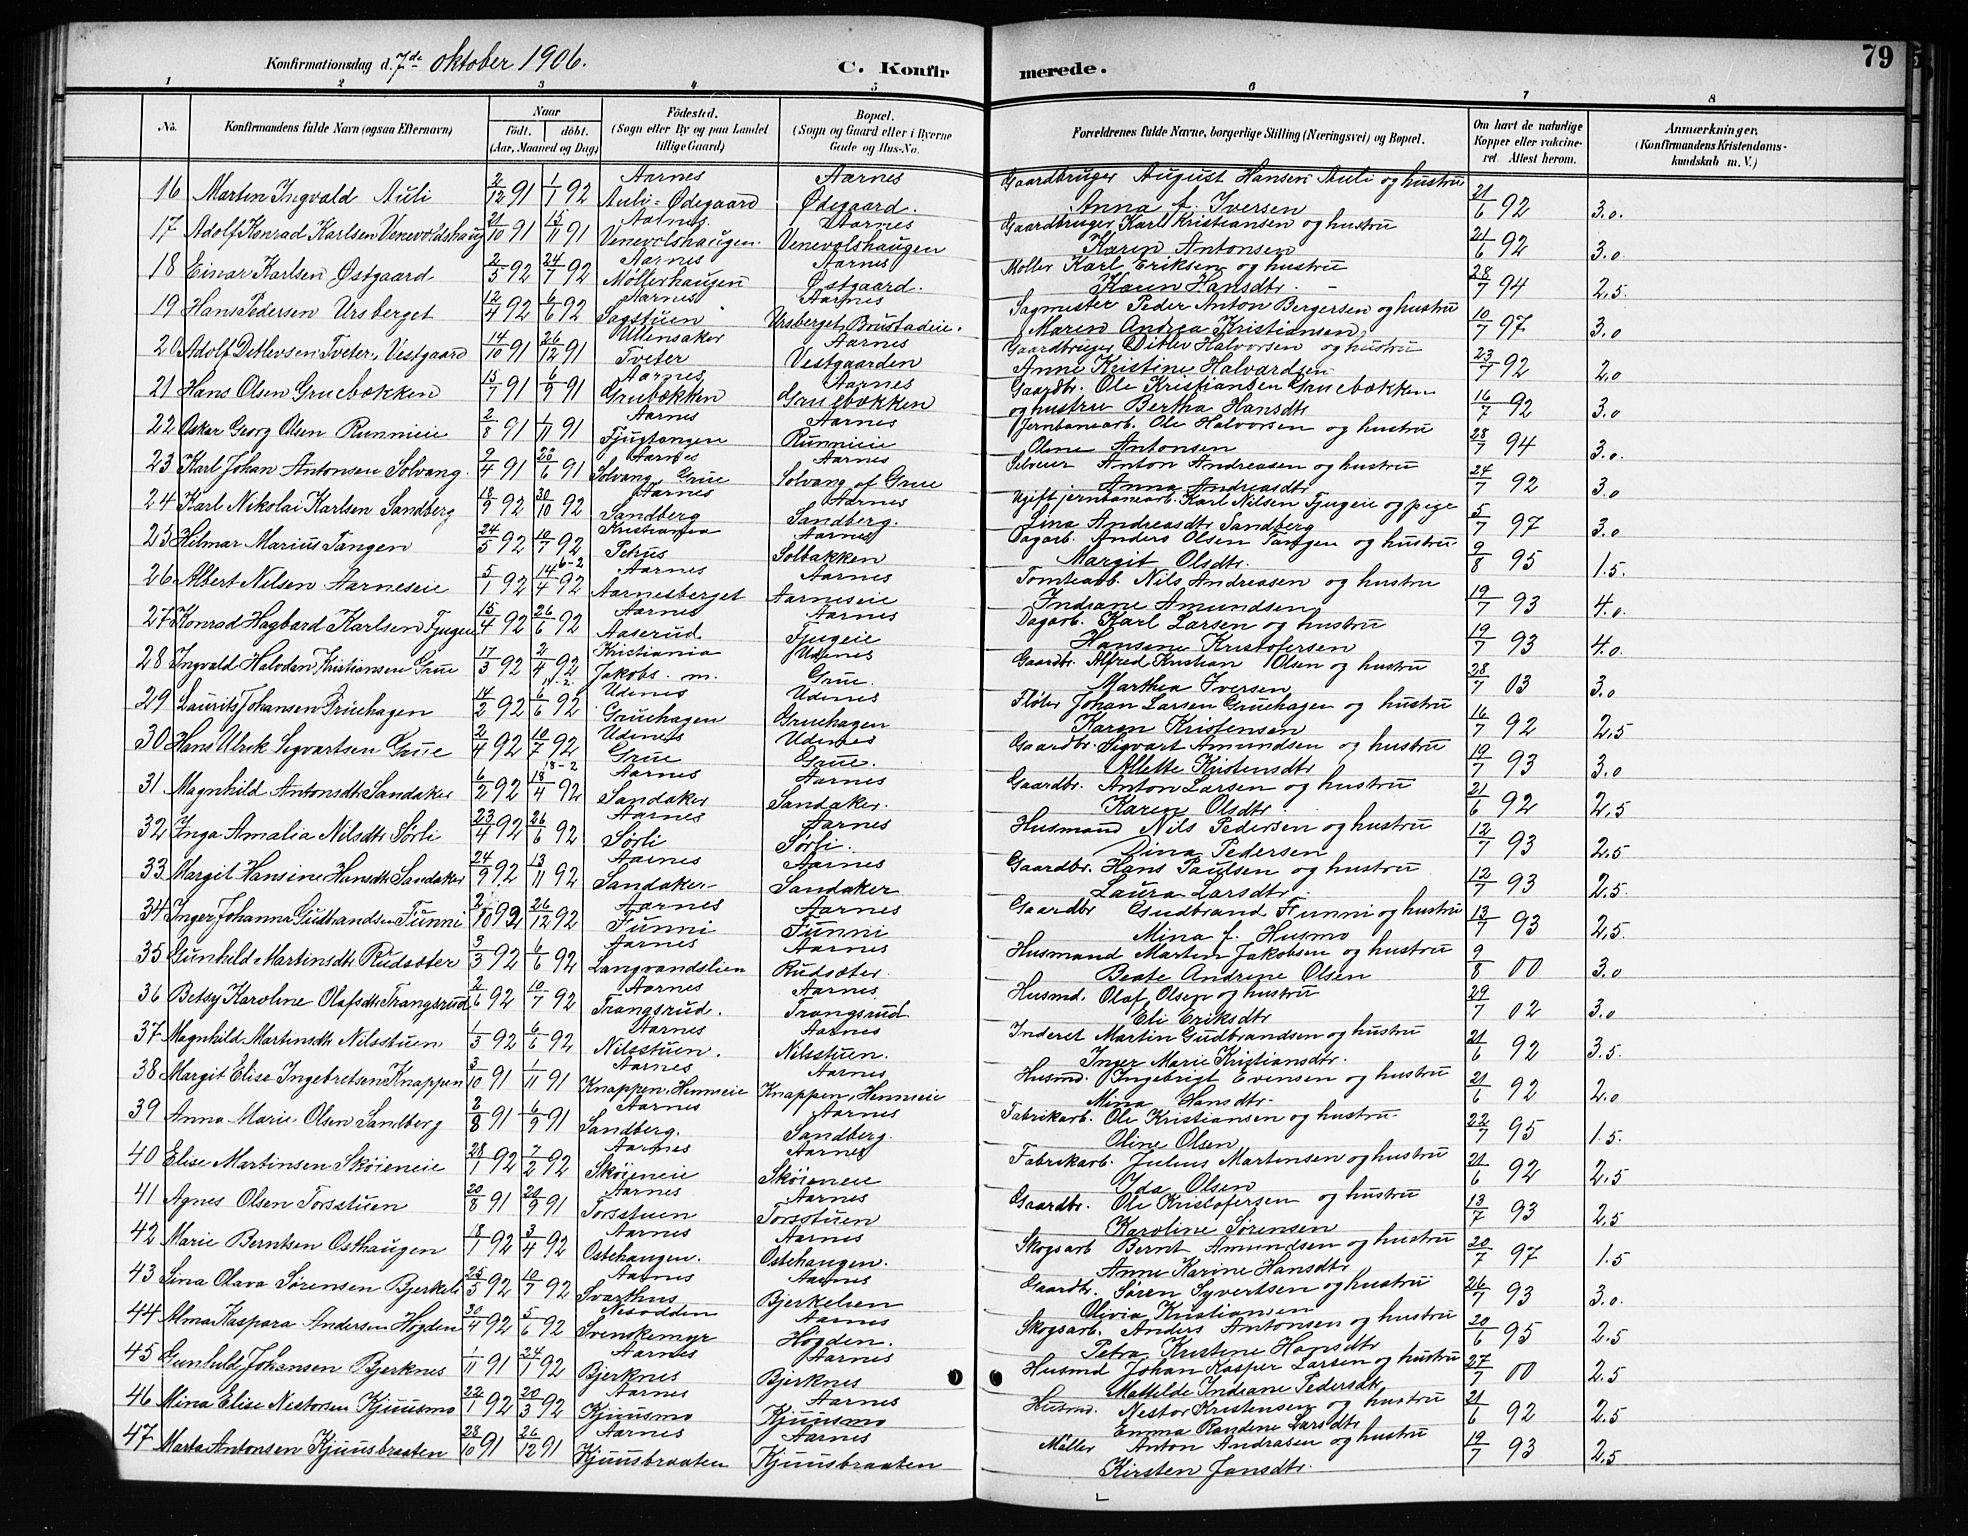 Konfirmationsdag d. 7de oktober 1906. C. Konfirmerede. 79
1 2 3 4 5 6 7 8
No. | Konfirmandens fulde Navn (ogsaa Efternavn) | Naar født. døbt. (Aar, Maaned og Dag) | Fødested. (Sogn eller By og paa Landet tillige Gaard) | Bopæl. (Sogn og Gaard eller i Byerne Gade og Hus-No. | Forældrenes fulde Navne, borgerlige Stilling (Næringsvei) og Bopæl. | Om havt de naturlige Kopper eller vakcineret. Attest herom. | Anmærkninger, (Konfirmandens Kristendomskundskab m. V.)
16 Martin Ingvald Auli 2/12 91 1/1 92 Aarnes Auli-Ødegaard Aarnes Ødegaard. Gaardbruger August Hansen Auli og hustru Anna f. Iversen 21/6 92 3.0.
17 Adolf Konrad Karlsen Venevoldshaug 21/10 91 15/11 91 Aarnes. Venevolshaugen. Aarnes Venevolshaugen Gaardbruger Karl Kristiansen og hustru Karen Antonsen 21/6 92 3.0
18 Einar Karlsen Østgaard 2/5 92 24/7 92 Aarnes Møllerhaugen Aarnes Østgaard. Møller Karl Eriksen og hustru Karen Hansdtr. 28/7 94 2,5.
19 Hans Pedersen Ursberget 12/4 92 6/6 92 Aarnes Sagstuen Aarnes Ursberget, Brustadeie. Sagmester Peder Anton Bergersen og hustru Maren Andrea Kristiansen 10/7 97 3.0
20 Adolf Detlevsen Tveter, Vestgaard 14/10 91 26/12 91 Ullensaker Tveter Aarnes Vestgaarden Gaardbruger Ditlev Halvorsen og hustru Anne Kristine Halvardsen 23/7 92 2.0
21 Hans Olsen Gruebækken 15/7 91 6/9 91 Aarnes Gruebækken Aarnes Gruebækken Gaardbr. Ole Kristiansen Gruebækken og hustru Bertha Hansdtr 16/7 92 3.0
22 Oskar Georg Olsen Runnieie 2/8 91 1/11 91 Aarnes Fjugtangen Aarnes Runnieie Jernbanearb. Ole Halvorsen og hustru Oline Antonsen 28/7 94 3.0.
23 Karl Johan Antonsen Solvang. 9/4 91 28/6 91 Aarnes Solvang, Grue Aarnes Solvang af Grue Selveier Anton Andreasen og hustru Anna Andreasdtr 24/7 92 3.0
24 Karl Nikolai Karlsen Sandberg 18/9 92 30/10 92 Aarnes Sandberg Aarnes Sandberg. Ugift jernbanearb. Karl Nilsen Fjugeie og pige Lina Andreasdtr Sandberg 5/7 97 3.0
25 Hilmar Marius Tangen 24/5 92 10/7 92 Kristiania Petrus Aarnes Solbakken Dagarb. Anders Olsen Tangen og hustru Margit Olsdtr. 9/8 95 1.5.
26 Albert Nilsen Aarneseie 5/1 92 6-2 14/4 92 Aarnes Aarnesberget Aarnes Aarneseie Tomtearb. Nils Andreasen og hustru Indiane Amundsen 19/7 93 4.0.
27 Konrad Hagbard Karlsen Fjugeie 15/4 92 26/6 92 Aarnes Aaserud Aarnes Fjugeie Dagarb. Karl Larsen og hustru Hansine Kristofersen 19/7 93 4.0
28 Ingvald Halvdan Kristiansen Grue 17/3 92 2/4 92 Kristiania Jakobs. m. Udenes Grue. Gaardbr. Alfred Kristian Olsen og hustru Marthea Iversen 28/7 03 3.0
29 Laurits Johansen Gruehagen 14/2 92 6/6 92 Udenes Gruehagen Udenes Gruehagen Fløter Johan Larsen Gruehagen og hustru Karen Kristensen 16/7 92 2,5
30 Hans Ulrik Sigvartsen Grue 2/4 92 10/7 92 Udenes Grue Udenes Grue. Gaardbr. Sigvart Amundsen og hustru Allette Kristensdtr 19/7 93 3.0
31 Magnhild Antonsdtr Sandaker 6/2 92 18-2 18/4 92 Aarnes Sandaker Aarnes Sandaker. Gaardbr. Anton Larsen og hustru Karen Olsdtr. 21/6 92 2,5
32 Inga Amalia Nilsdtr Sørli 23/4 92 26/6 92 Aarnes Sørli Aarnes Sørli. Husmand Nils Pedersen og hustru Dina Pedersen 12/7 93 2.5
33 Margit Hansine Hansdtr Sandaker 24/9 92 13/11 92 Aarnes Sandaker Aarnes Sandaker Gaardbr. Hans Paulsen og hustru Laura Larsdtr. 12/7 93 2.5.
34 Inger Johanna Gudbrandsen Funni 2/10 92 26/12 92 Aarnes Funni Aarnes Funni Gaardbr Gudbrand Funni og hustru Mina f. Husmo 13/7 93 2,5.
35 Gunhild Martinsdtr Rudsæter 3/3 92 6/6 92 Aarnes Langvandslien Aarnes Rudsæter. Husmand Martin Jakobsen og hustru Beate Andrine Olsen 9/8 00 3.0
36 Betsy Karoline Olafsdtr Trangsrud 2/6 92 10/7 92 Aarnes Trangsrud. Aarnes Trangsrud. Husmd. Olaf Olsen og hustru Eli Eriksdtr 29/7 02 3.0
37 Magnhild Martinsdtr Nilsstuen 1/3 92 6/6 92 Aarnes Nilsstuen. Aarnes Nilsstuen. Inderst Martin Gudbrandsen og hustru Inger Marie Kristiansdtr. 21/6 92 3.5.
38 Margit Elise Ingebretsen Knappen 3/10 91 1/11 91 Aarnes Knappen, Henneie Aarnes Knappen, Henneie Husmd. Ingebrigt Evensen og hustru Mina Hansdtr. 21/6 92 2.0
39 Anna Marie Olsen Sandberg 2/8 91 6/9 91 Aarnes Sandberg. Aarnes Sandberg. Fabrikarb. Ole Kristiansen og hustru Oline Olsen 22/7 95 1.5.
40 Elise Martinsen Skøieneie 28/1 92 7/2 92 Aarnes Skøieneie Aarnes Skøieneie Fabrikarb. Julius Martinsen og hustru Ida Olsen 21/6 92 2,5
41 Agnes Olsen Torsstuen 20/8 91 20/9 91 Aarnes Torsstuen Aarnes Torsstuen Gaardbr. Ole Kristofersen og hustru Karoline Sørensen 13/7 93 2,5
42 Marie Berntsen Osthaugen 18/1 92 3/4 92 Aarnes Ostehaugen. Aarnes Ostehaugen. Skogsarb Bernt Amundsen og hustru Anne Karine Hansdtr 20/7 97 1.5
43 Lina Olava Sørensen Bjerkeli 25/5 92 10/7 92 Aarnes Svarthus Aarnes Bjerkelien Gaardbr. Søren Syvertsen og hustru Olivia Kristiansen 26/7 93 3.0.
44 Alma Kaspara Andersen Høgden 30/4 92 5/6 92 Nesodden Svenskemyr Aarnes Høgden. Skogsarb. Anders Antonsen og hustru Petra Kristine Hansdtr 20/6 95 2.5
45 Gunhild Johansen Bjerknes 1/11 91 24/1 92 Aarnes Bjerknes Aarnes Bjerknes Husmd Johan Kasper Larsen og hustru Mathilde Indiane Pedersdtr 27/7 00 2.5
46 Mina Elise Nestorsen Kjuusmo 22/1 92 20/3 92 Aarnes Kjuusmo Aarnes Kjuusmo Husmd. Nestor Kristensen og hustru Emma Randine Larsdtr 21/6 92 2.5
47 Marta Antonsen Kjuusbraaten 28/10 91 26/12 91 Aarnes Kjuusbraaten Aarnes Kjuusbraaten Møller Anton Andrasen og hustru Kirsten Jansdtr. 19/7 93 2,5